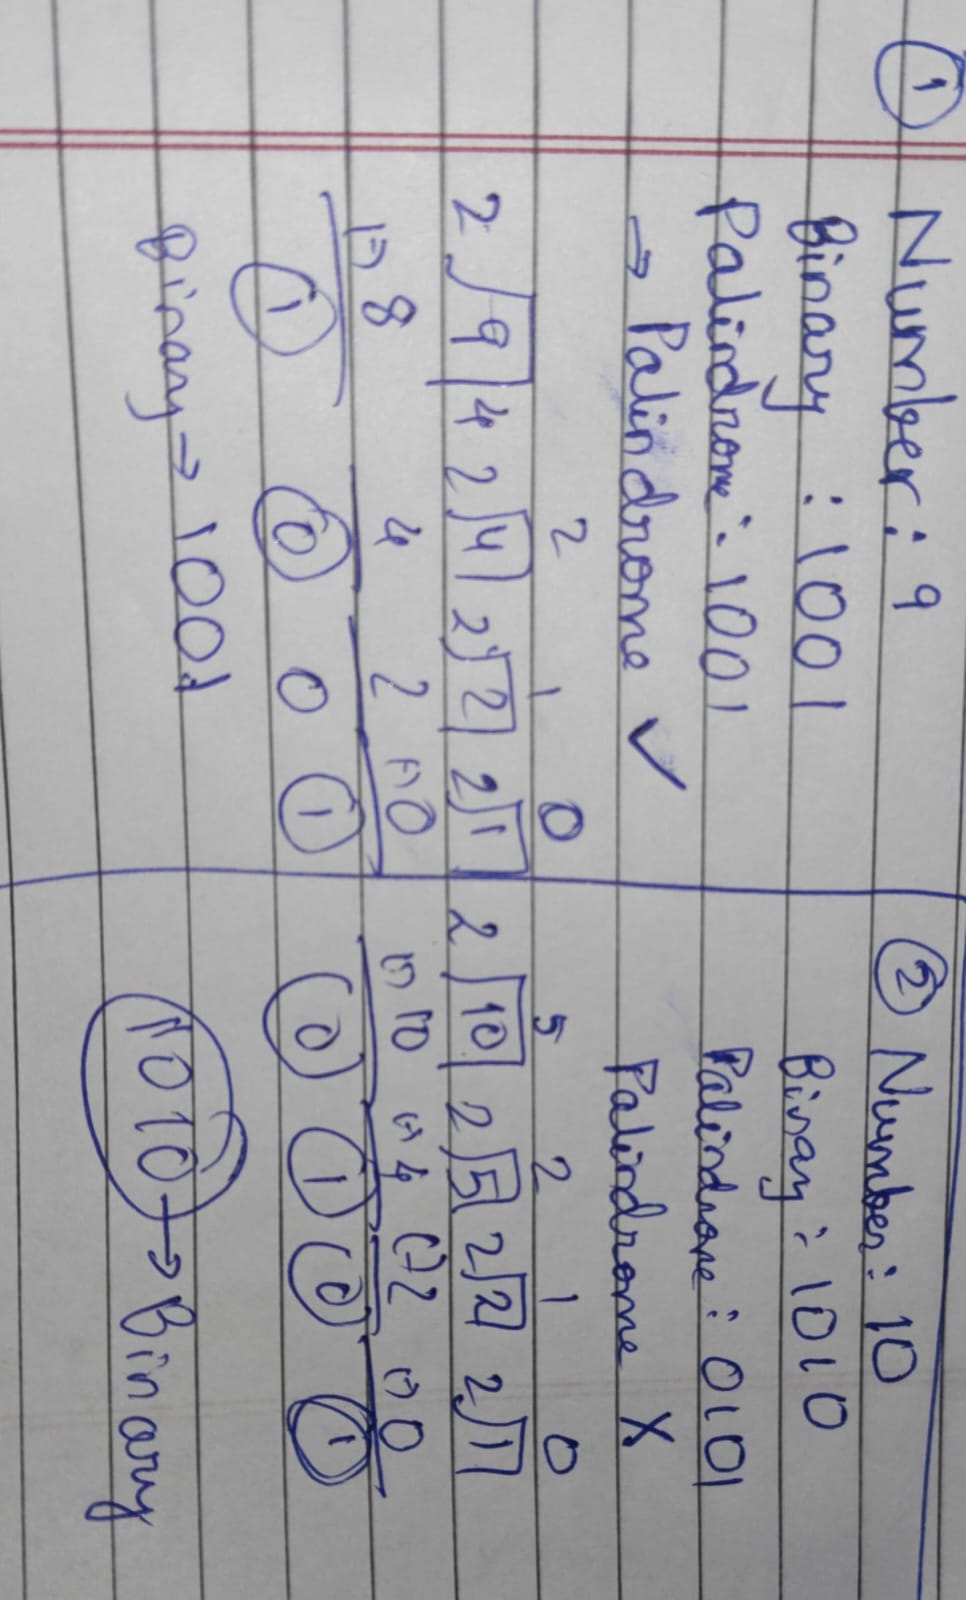 ① Number: 9
Binary : 1001
Palindrome: 1001
→ Palindrome ✓
2 1 0
2 9 4 2 4 2 2 2 1
(-) 8 4 2 (-) 0
1 0 0 1
Binary → 1001
② Number: 10
Binary: 1010
Palindrome: 0101
Palindrome X
5 2 1 0
2 10 2 5 2 2 2 1
(-) 10 (-) 4 (-) 2 (-) 0
0 1 0 1
1010 → Binary